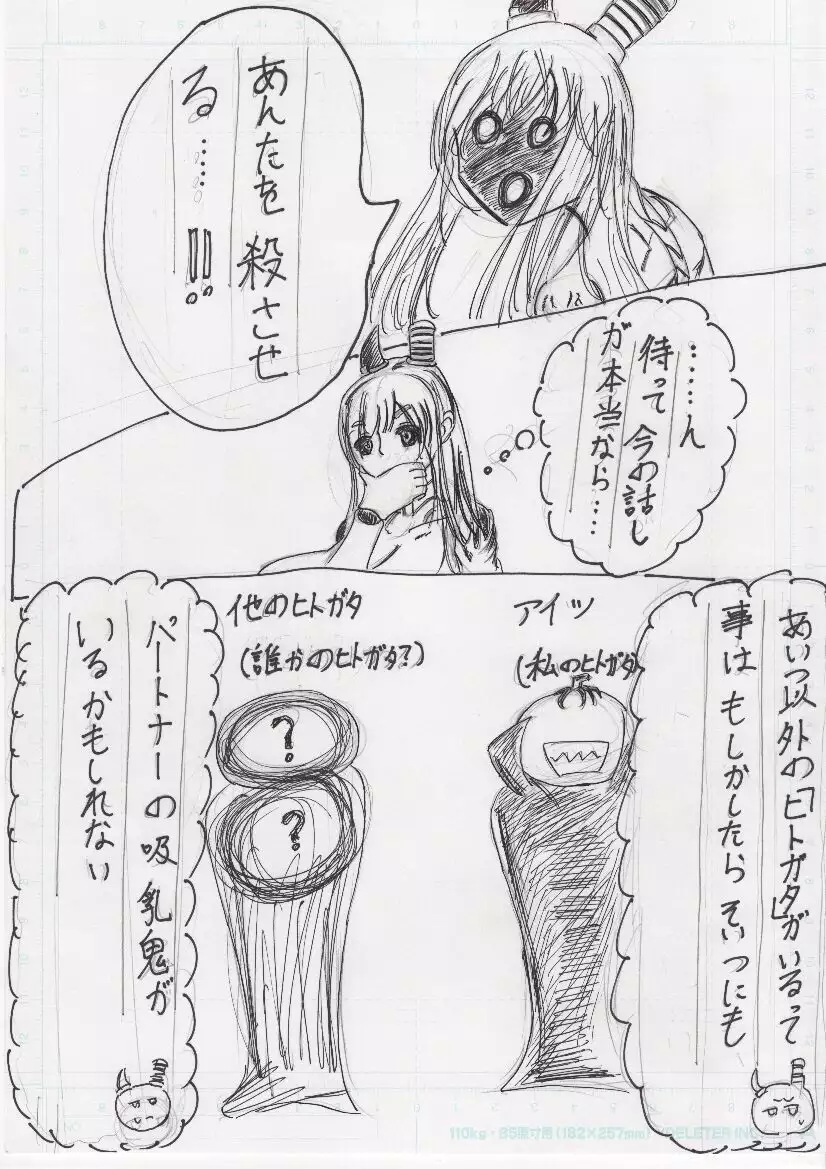 あんたを殺させ
る……!!
……ん
待って今の話し
が本当なら……
あいつ以外の「ヒトガタ」がいるって
事はもしかしたらそいつにも
アイツ
(私のヒトガタ)
他のヒトガタ
(誰かのヒトガタ?)
?
?
パートナーの吸乳鬼が
いるかもしれない
110kg・B5原寸用(182×257mm)
DELETER INC